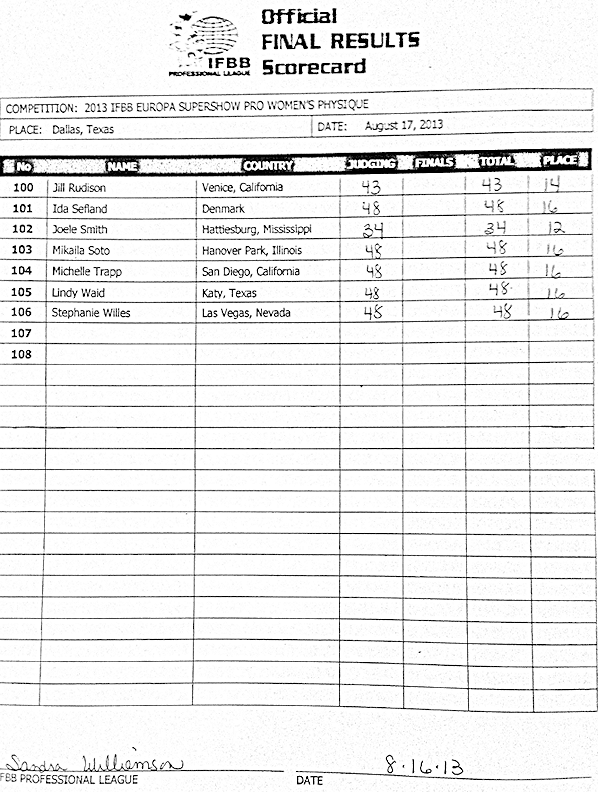 Official
FINAL RESULTS
Scorecard
IFBB
PROFESSIONAL LEAGUE
COMPETITION: 2013 IFBB EUROPA SUPERSHOW PRO WOMEN'S PHYSIQUE
PLACE: Dallas, Texas DATE: August 17, 2013
No NAME COUNTRY JUDGING FINALS TOTAL PLACE
100 Jill Rudison Venice, California 43 43 14
101 Ida Sefland Denmark 48 48 16
102 Joele Smith Hattiesburg, Mississippi 34 34 12
103 Mikaila Soto Hanover Park, Illinois 48 48 16
104 Michelle Trapp San Diego, California 48 48 16
105 Lindy Waid Katy, Texas 48 48 16
106 Stephanie Willes Las Vegas, Nevada 48 48 16
107
108
Sandra Williamson 8·16·13
FBB PROFESSIONAL LEAGUE DATE